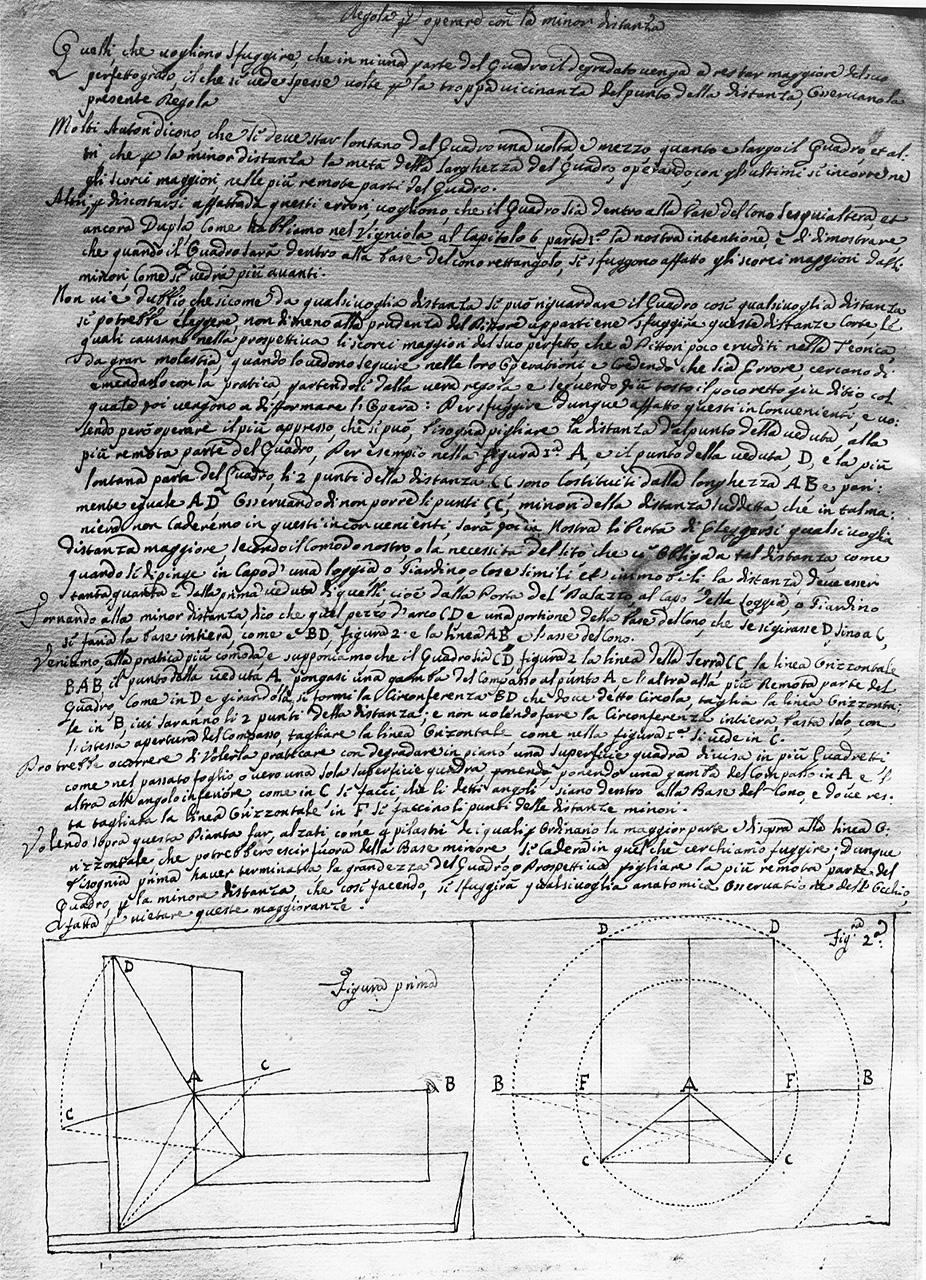 Regola p operare con la minor distanza
Quelli, che vogliono sfuggire, che in niuna parte del Quadro il degradato venga a restar maggiore del suo
perfetto, il che si vede spesse volte p la troppa vicinanza del punto della distanza, osservano la
presente Regola
Molti Autori dicono che si deve star lontano dal Quadro una volta e mezzo quanto e largo il Quadro, et al:
tri che p la minor distanza la metà della larghezza del Quadro, operando con gli ultimi si incorre ne
gli scorci maggiori, nelle più remote parti del Quadro.
Altri p discostarsi affatto da questi errori vogliono, che il Quadro sia dentro alla base del Cono sesquialtera, et
ancora Dupla come habbiamo nel Vigniola al Capitolo 6 parte 1ª. la nostra intentione, è di dimostrare
che quando il Quadro sarà dentro alla base del cono rettangolo, si sfuggono affatto gli scorci maggiori dalli
minori come si vedra più avanti.
Non vi è dubbio che sicome da qualsivoglia distanza si può riguardare il Quadro così qualsivoglia distanza
si potrebbe eleggere, non dimeno alla prudenza del Pittore appartiene sfuggire queste distanze corte le
quali causano nella prospettiva li scorci maggiori del suo perfetto, che a Pittori poco eruditi nella Teorica,
da gran molestia, quando lo vedono seguire nelle loro Operationi e credendo che sia Errore cercano di
emendarlo con la pratica partendosi dalla vera regola e seguendo più tosto il poco retto giuditio col
quale poi vengono a difformare l'Opera: Per sfuggire dunque affatto questi inconvenienti, e vo:
lendo però operare il più appresso, che si può, bisogna pigliare la distanza dal punto della veduta, alla
più remota parte del Quadro, Per esempio nella figura 1ª. A, e il punto della veduta, D, e la più
lontana parte del Quadro, li 2 punti della distanza CC sono costituiti dalla longhezza AB e pari:
mente equale AD Osservando di non porre li punti CC, minori della distanza suddetta che in tal ma:
niera non caderemo in questi inconvenienti, sarà poi in Nostra libertà di Eleggersi qualsivoglia
distanza maggiore secondo il comodo nostro o la necessità del sito che ci obliga a tal distanza come
quando si dipinge in Capo d'una loggia o Giardino o cose simili et immobili la distanza deve esser
tanta quanta è dalla prima veduta di quelli cioè dalla Porta del Palazzo al Capo della Loggia, o Giardino
Tornando alla minor distanza, dico che quel pezzo d'arco CD e una portione della base del Cono, che se si girasse D sino a C,
si faria la base intiera, come e BD, figura 2. e la linea AB e l'asse del Cono.
Veniamo, alla pratica più comoda, e supponiamo che il Quadro sia CD figura 2 la linea della Terra CC, la linea Orizzontale
BAB, il punto della veduta A. pongasi una gamba del Compasso al punto A e l'altra alla più Remota parte del
Quadro come in D e girandola, si formi la Circonferenza BD che dove detto Circolo, taglia la linea Orizzonta:
le in B, ivi saranno li 2 punti della distanza; e non volendo fare la Circonferenza intiera, basta solo, con
l'istessa apertura del compasso, tagliare la linea Orizontale come nella figura 1ª. si vede in C.
Potrebbe occorrere di Volerla pratticare con degradare in piano una superficie quadra divisa in più Quadretti
come nel passato foglio overo una sola superficie quadra, ponendo ponendo una gamba del Compasso in A e l'
altra all'angolo inferiore come in C si facci che li detti angoli siano dentro alla Base del Cono, e dove res:
ta tagliata la linea Orizzontale in F si faccino li punti delle distanze minori.
Volendo sopra questa Pianta far, alzati come p pilastri de i quali p Ordinario la maggior parte e di sopra alla linea O:
rizzontale che potrebbero escir fuora della Base minore si caderà in quel che cerchiamo fuggire; Dunque
bisognia prima haver terminata la grandezza del Quadro o Prospettiva, pigliare la più remota parte del
Quadro, p la minore distanza, che così facendo, si sfuggirà qualsivoglia anatomica Osservatione dell'Occhio,
fatta p vietare queste maggioranze.
Figura prima
D
A
C
C
B
Figra 2ª.
D
D
B
F
A
F
B
C
C